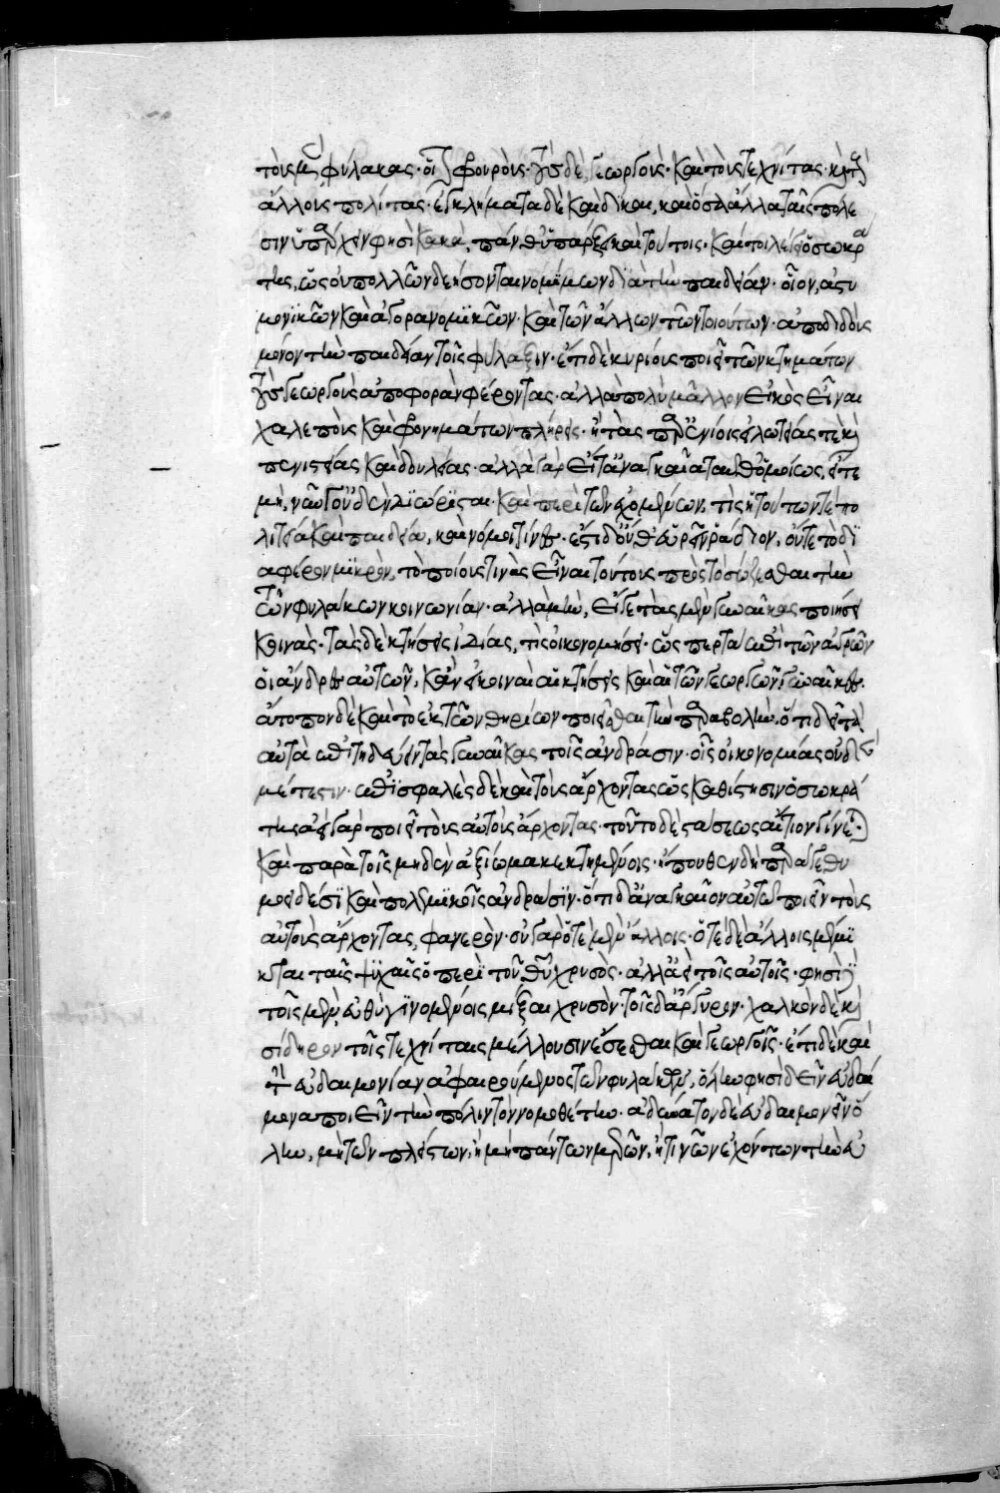 τοὺς μὲν φύλακας οἷον φρουροὺς· τοὺς δὲ γεωργοὺς καὶ τοὺς τεχνίτας καὶ τοὺς
ἄλλους πολίτας· ἐγκλήματα δὲ καὶ δίκαι, καὶ ὅσα ἄλλα ταῖς πόλε
σιν ὑπάρχειν φησὶ κακὰ, πάνθ' ὑπάρξει καὶ τούτοις· καίτοι λέγει ὁ σωκρά
της, ὡς οὐ πολλῶν δεήσονται νομίμων διὰ τὴν παιδείαν· οἷον, ἀστυ
νομικῶν καὶ ἀγορανομικῶν· καὶ τῶν ἄλλων τῶν τοιούτων· ἀποδιδοὺς
μόνον τὴν παιδείαν τοῖς φύλαξιν· ἔτι δὲ κυρίους ποιεῖ τῶν κτημάτων
τοὺς γεωργοὺς ἀποφορὰν φέροντας· ἀλλὰ πολὺ μᾶλλον εἰκὸς εἶναι
χαλεποὺς καὶ φρονημάτων πλήρεις· ἢ τὰς παρ' ἐνίοις εἱλωτείας τε καὶ
πενεστείας καὶ δουλείας· ἀλλὰ γὰρ εἴτ' ἀναγκαῖα ταῦθ' ὁμοίως, εἴτε
μή, νῦν γ' οὐδὲν διώρισται· καὶ περὶ τῶν ἐχομένων, τίς ἡ τούτων τε πο
λιτεία καὶ παιδεία, καὶ νόμοι τίνες· ἔστι δ' οὔθ' εὑρεῖν ῥάδιον, οὔτε τὸ δι
αφέρον μικρὸν, τὸ ποίους τινὰς εἶναι τούτους πρὸς τὸ σώζεσθαι τὴν
τῶν φυλάκων κοινωνίαν· ἀλλὰ μὴν, εἴγε τὰς μὲν γυναῖκας ποιήσει
κοινάς· τὰς δὲ κτήσεις ἰδίας, τίς οἰκονομήσει· ὥσπερ τὰ ἐπὶ τῶν ἀγρῶν
οἱ ἄνδρες αὐτῶν· κἂν εἰ κοιναὶ αἱ κτήσεις καὶ αἱ τῶν γεωργῶν γυναῖκες·
ἄτοπον δὲ καὶ τὸ ἐκ τῶν θηρίων ποιεῖσθαι τὴν παραβολὴν· ὅτι δεῖ τὰ
αὐτὰ ἐπιτηδεύειν τὰς γυναῖκας τοῖς ἀνδράσιν· οἷς οἰκονομίας οὐδὲν
μέτεστιν· ἐπισφαλὲς δὲ καὶ τοὺς ἄρχοντας ὡς καθίστησιν ὁ σωκρά
της· ἀεὶ γὰρ ποιεῖ τοὺς αὐτοὺς ἄρχοντας· τοῦτο δὲ στάσεως αἴτιον γίνεται
καὶ παρὰ τοῖς μηδὲν ἀξίωμα κεκτημένοις· ἤπουθεν δὴ παρὰ γε θυ
μοειδέσι καὶ πολεμικοῖς ἀνδράσιν· ὅτι δ' ἀναγκαῖον αὐτῷ ποιεῖν τοὺς
αὐτοὺς ἄρχοντας, φανερόν· οὐ γὰρ ὁτὲ μὲν ἄλλοις· ὁτὲ δὲ ἄλλοις μέμι
κται ταῖς ψυχαῖς ὁ περὶ τοῦ θεοῦ χρυσὸς· ἀλλ' ἀεὶ τοῖς αὐτοῖς· φησὶ δὲ
τοῖς μὲν εὐθὺ γινομένοις μίξαι χρυσὸν· τοῖς δ' ἄργυρον· χαλκὸν δὲ καὶ
σίδηρον τοῖς τεχνίταις μέλλουσιν ἔσεσθαι καὶ γεωργοῖς· ἔτι δὲ καὶ
τὴν εὐδαιμονίαν ἀφαιρούμενος τῶν φυλάκων, ὅλην φησὶ δεῖν εὐδαί
μονα ποιεῖν τὴν πόλιν τὸν νομοθέτην· ἀδύνατον δὲ εὐδαιμονεῖν ὅ
λην, μὴ τῶν πλείστων, ἢ μὴ πάντων μερῶν, ἢ τινῶν ἐχόντων τὴν εὐ